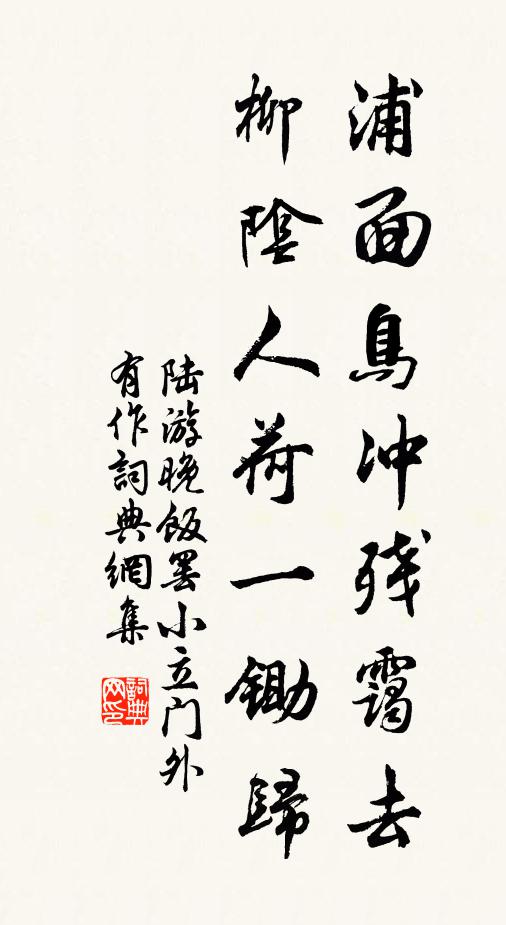 浦面鳥冲残靄去
柳陰人荷一鋤歸
陆游晚飯罢小立门外
有作詞典網集
詞典
网印